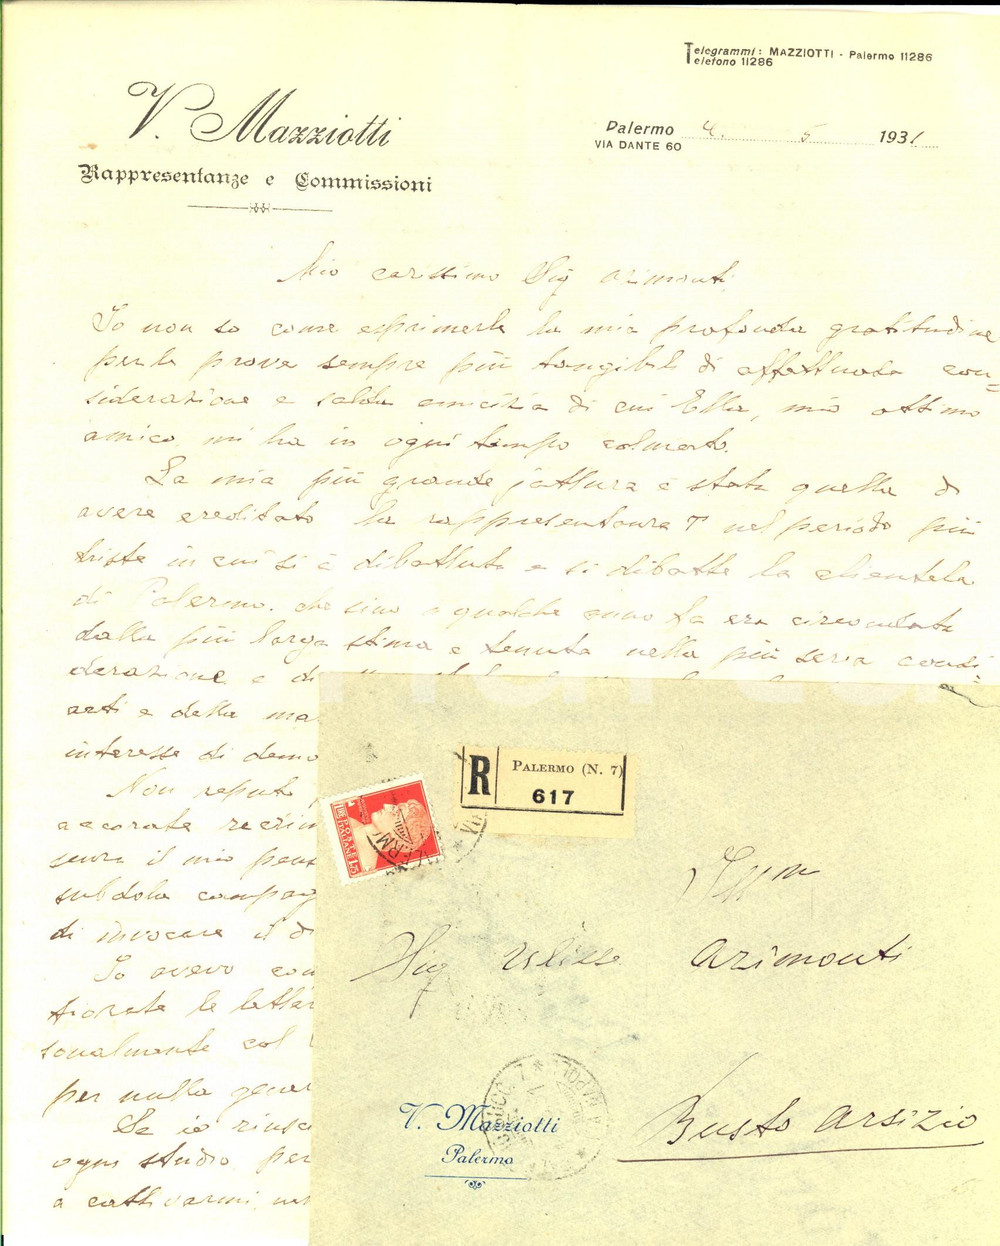 Telegrammi: MAZZIOTTI - Palermo 11286
Telefono 11286
V. Mazziotti
Rappresentanze e Commissioni
Palermo 4. 5 1931
VIA DANTE 60
Mio carissimo Sig Azimonti,
Io non so come esprimerle la mia profonda gratitudine
per le prove sempre più tangibili di affettuosa con=
siderazione e salda amicizia di cui Ella, mio ottimo
amico, mi ha in ogni tempo colmato.
La mia più grande jattura è stata quella di
avere ereditato la rappresentanza nel periodo più
triste in cui si è dibattuta e si dibatte la clientela
di Palermo, che sino a qualche anno fa era circondata
dalla più larga stima e tenuta nella più seria consi-
derazione e di
seti e della ma
interesse di demo
Non reputo
accorate
senza il mio pens
subdola compag
di invocare il d
Io avevo con
le letter
sonalmente col
per nulla gener
Se io riusc
ogni studio per
a cattivarmi
R
PALERMO (N. 7)
617
POSTE
ITALIANE
L 1,75
Sig Ulisse Azimonti
Busto Arsizio
V. Mazziotti
Palermo